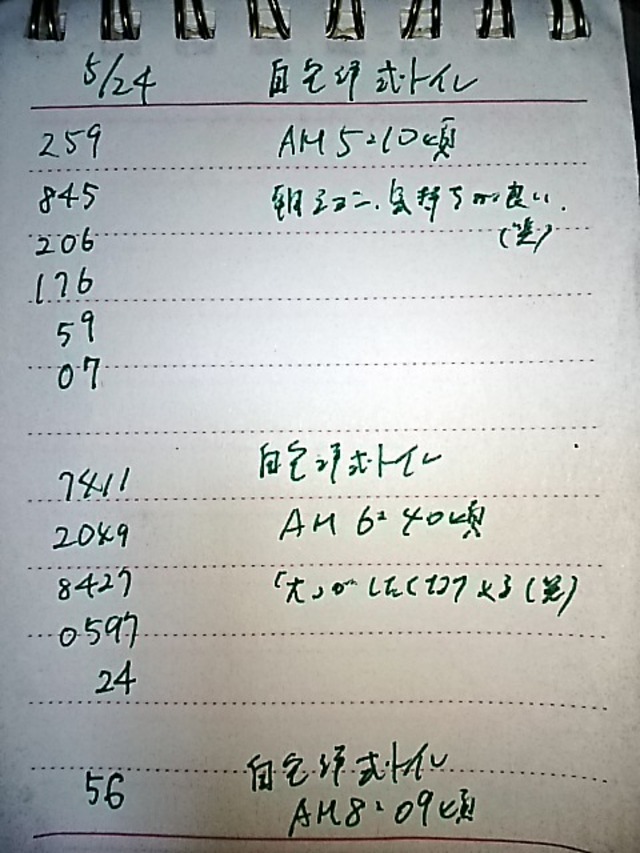 5/24 自宅洋式トイレ
259 AM 5:10頃
845 朝シコシコ、気持ちが良い、
206 (笑)
176
59
07
自宅洋式トイレ
7411
2049 AM 6:40頃
8427 「大」がしたくなってくる(笑)
0597
24
56 自宅洋式トイレ
AM 8:09頃